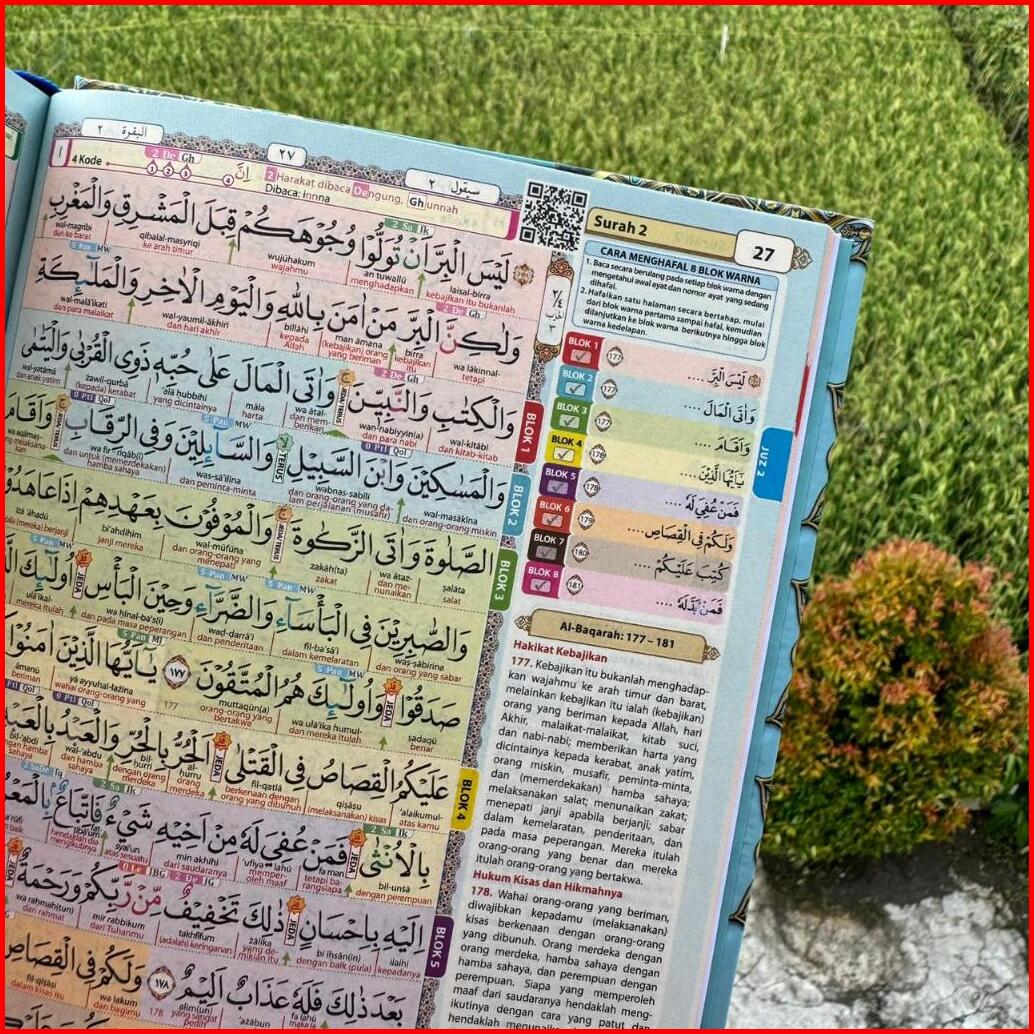 البقرة ٢
٢٧
سيقول ٢
4 Kode
2 De Gh
إِنَّ
2 Harakat dibaca Dengung, Ghunnah
Dibaca: innna
لَيْسَ الْبِرَّ اَنْ تُوَلُّوْا وُجُوْهَكُمْ قِبَلَ الْمَشْرِقِ وَالْمَغْرِبِ
laisal-birra an tuwallū wujūhakum qibalal-masyriqi wal-magribi
kebajikan itu bukanlah menghadapkan wajahmu ke arah timur dan ke barat
وَلٰكِنَّ الْبِرَّ مَنْ اٰمَنَ بِاللّٰهِ وَالْيَوْمِ الْاٰخِرِ وَالْمَلٰۤىِٕكَةِ
wa lākinnal- birra man āmana billāhi wal-yaumil-ākhiri wal-malā'ikati
tetapi kebajikan itu (kebajikan) orang yang beriman kepada Allah dan hari akhir dan para malaikat
وَالْكِتٰبِ وَالنَّبِيّٖنَ وَاٰتَى الْمَالَ عَلٰى حُبِّهٖ ذَوِى الْقُرْبٰى وَالْيَتٰمٰى
wal-kitābi wan-nabiyyīn(a) wa ātal- māla 'alā ḥubbihī żawil-qurbā wal-yatāmā
dan kitab-kitab dan para nabi dan memberikan harta yang dicintainya (kepada) kerabat dan anak yatim
وَالْمَسٰكِيْنَ وَابْنَ السَّبِيْلِ وَالسَّاۤىِٕلِيْنَ وَفِى الرِّقَابِ وَاَقَامَ
wal-masākīna wabnas-sabīli was-sā'ilīna wa fir-riqāb(i)
dan orang-orang miskin dan orang-orang yang dalam perjalanan (musafir) dan peminta-minta dan untuk (memerdekakan) hamba sahaya
الصَّلٰوةَ وَاٰتَى الزَّكٰوةَ وَالْمُوْفُوْنَ بِعَهْدِهِمْ اِذَا عَاهَدُوْا
ṣalāta wa ātaz- zakāh(ta) wal-mūfūna bi'ahdihim iżā 'āhadū
salat dan menunaikan zakat dan orang-orang yang menepati janji mereka
وَالصّٰبِرِيْنَ فِى الْبَأْسَاۤءِ وَالضَّرَّاۤءِ وَحِيْنَ الْبَأْسِ اُولٰۤىِٕكَ
waṣ-ṣābirīna fil-ba'sā'i waḍ-ḍarrā'i wa ḥīnal-ba's(i) ulā'ikal-
dan orang yang sabar dalam kemelaratan dan penderitaan dan pada masa peperangan mereka itulah
صَدَقُوْا وَاُولٰۤىِٕكَ هُمُ الْمُتَّقُوْنَ ١٧٧ يٰٓاَيُّهَا الَّذِيْنَ اٰمَنُوْا
ṣadaqū wa ulā'ika humul- muttaqūn(a) 177 yā ayyuhal-lażīna āmanū
benar dan mereka itulah orang-orang yang bertakwa wahai orang-orang yang beriman
عَلَيْكُمُ الْقِصَاصُ فِى الْقَتْلٰى اَلْحُرُّ بِالْحُرِّ وَالْعَبْدُ بِالْعَبْدِ
'alaikumul- qiṣāṣu fil-qatlā al-ḥurru bil-ḥurri wal-'abdu bil-'abdi
atas kamu (melaksanakan) kisas berkenaan dengan orang yang dibunuh orang merdeka dengan orang merdeka dan hamba sahaya
بِالْاُنْثٰى فَمَنْ عُفِيَ لَهٗ مِنْ اَخِيْهِ شَيْءٌ فَاتِّبَاعٌ بِالْمَعْرُوْفِ
bil-unṡā faman 'ufiya lahū min akhīhi syai'un
dengan perempuan tetapi barangsiapa memperoleh maaf dari saudaranya
اِلَيْهِ بِاِحْسَانٍ ذٰلِكَ تَخْفِيْفٌ مِّنْ رَّبِّكُمْ وَرَحْمَةٌ
ilaihi bi iḥsān(in) żālika takhfīfum mir rabbikum wa raḥmah(tun)
kepadanya dengan baik (pula) yang demikian itu (adalah) keringanan dari Tuhanmu dan rahmat
بَعْدَ ذٰلِكَ فَلَهٗ عَذَابٌ اَلِيْمٌ ١٧٨ وَلَكُمْ فِى الْقِصَاصِ
'ażābun alīm(un) 178 wa lakum fil-qiṣāṣi
BLOK 1
BLOK 2
BLOK 3
BLOK 4
BLOK 5
Surah 2
27
CARA MENGHAFAL 8 BLOK WARNA
1. Baca secara berulang pada setiap blok warna dengan
mengetahui awal ayat dan nomor ayat yang sedang
dihafal.
2. Hafalkan satu halaman secara bertahap, mulai
dari blok warna pertama sampai hafal, kemudian
dilanjutkan ke blok warna berikutnya hingga blok
warna kedelapan.
BLOK 1 177 لَيْسَ الْبِرَّ ....
BLOK 2 177 وَاٰتَى الْمَالَ ....
BLOK 3 177 وَاَقَامَ ....
BLOK 4 178 يٰٓاَيُّهَا الَّذِيْنَ ....
BLOK 5 178 فَمَنْ عُفِيَ لَهٗ ....
BLOK 6 179 وَلَكُمْ فِى الْقِصَاصِ ....
BLOK 7 180 كُتِبَ عَلَيْكُمْ ....
BLOK 8 181 فَمَنْۢ بَدَّلَهٗ ....
JUZ 2
Al-Baqarah: 177 – 181
Hakikat Kebajikan
177. Kebajikan itu bukanlah menghadap-
kan wajahmu ke arah timur dan barat,
melainkan kebajikan itu ialah (kebajikan)
orang yang beriman kepada Allah, hari
Akhir, malaikat-malaikat, kitab suci,
dan nabi-nabi; memberikan harta yang
dicintainya kepada kerabat, anak yatim,
orang miskin, musafir, peminta-minta,
dan (memerdekakan) hamba sahaya;
melaksanakan salat; menunaikan zakat;
menepati janji apabila berjanji; sabar
dalam kemelaratan, penderitaan, dan
pada masa peperangan. Mereka itulah
orang-orang yang benar dan mereka
itulah orang-orang yang bertakwa.
Hukum Kisas dan Hikmahnya
178. Wahai orang-orang yang beriman,
diwajibkan kepadamu (melaksanakan)
kisas berkenaan dengan orang-orang
yang dibunuh. Orang merdeka dengan
orang merdeka, hamba sahaya dengan
hamba sahaya, dan perempuan dengan
perempuan. Siapa yang memperoleh
maaf dari saudaranya hendaklah meng-
ikutinya dengan cara yang patut dan